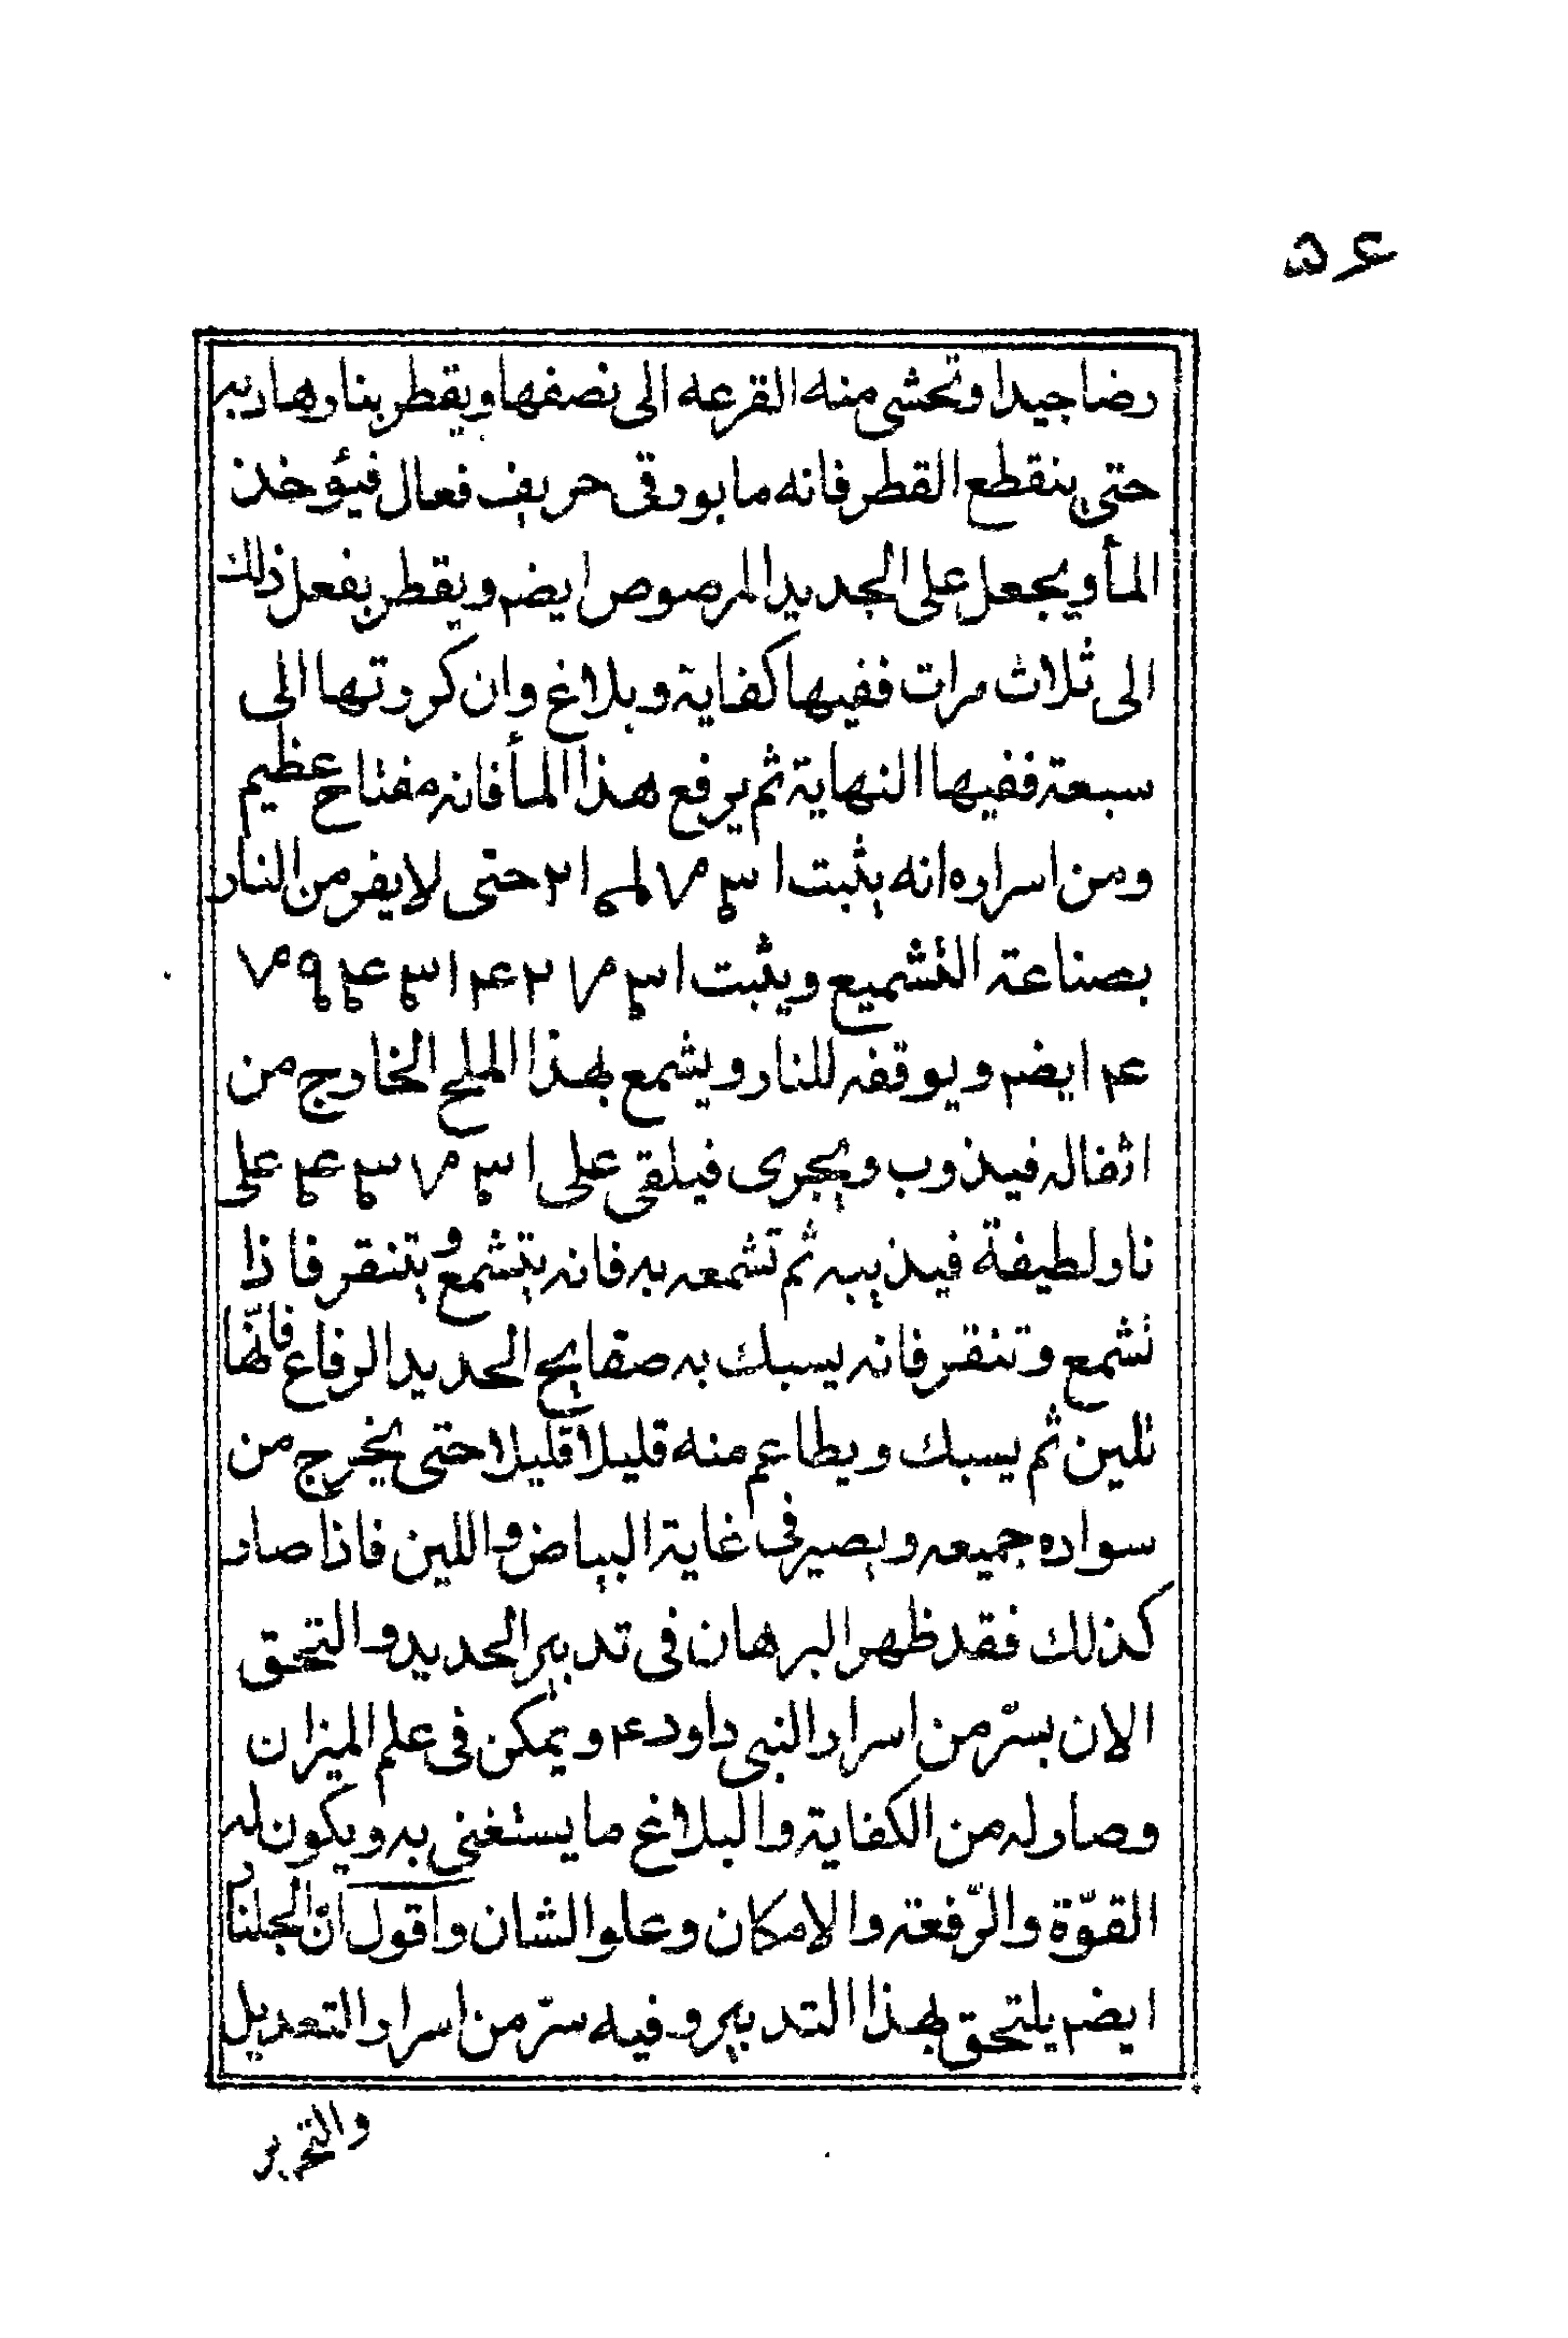 ٥٦
رضا جيدا وتحشى منه القرعه الى نصفها ويقطر بنار هاديه
حتى ينقطع القطر فانه ما بورقى حريف فعال فيؤخذ
المأ ويجعل على الجديد المرصوص ايضم ويقطر يفعل ذلك
الى ثلاث مرات ففيها كفاية وبلاغ وان كررتها الى
سبعة ففيها النهاية ثم يرفع هذا المأ فانه مفتاح عظيم
ومن اسراره انه يثبت حتى لا يفر من النار
بصناعة التشميع ويثبت
ايضم ويوقفه للنار ويشمع بهذا الملح الخارج من
اثفاله فيذوب ويجرى فيلقى على على
نار لطيفة فيذيبه ثم تشمعه به فانه يتشمع ويتنقر فاذا
تشمع وتنقر فانه يسبك به صفايح الحديد الرفاع فانها
تلين ثم يسبك ويطاعم منه قليلا قليلا حتى يخرج من
سواده جميعه ويصير فى غاية البياض واللين فاذا صار
كذلك فقد ظهر البرهان فى تدبير الحديد والتحق
الان بسرّ من اسرار النبى داود ۴ ويمكن فى علم الميزان
وصار له من الكفاية والبلاغ ما يستغنى به ويكون له
القوّة والرّفعة والامكان وعلو الشان واقول انّ
ايضم يلتحق بهذا التدبير وفيه سرّ من اسرار التعديل
والتحرير